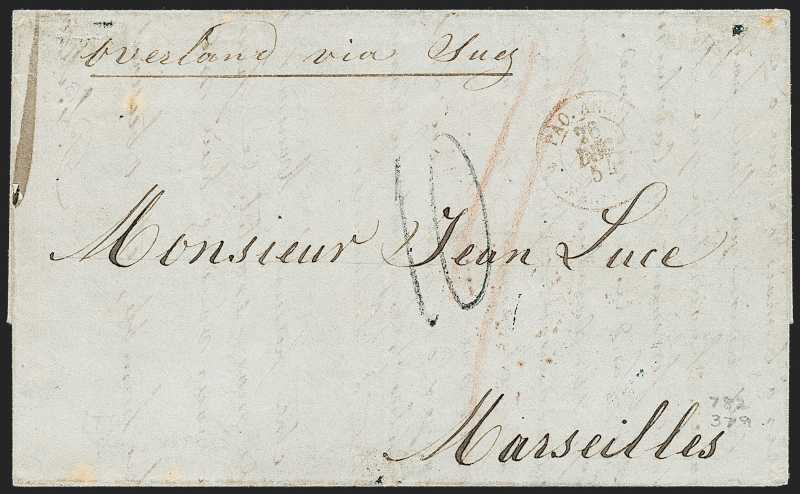 Overland via Suez
PAQ. AN
26
DEC
54
10
Monsieur Jean Luce
Marseilles
782
379